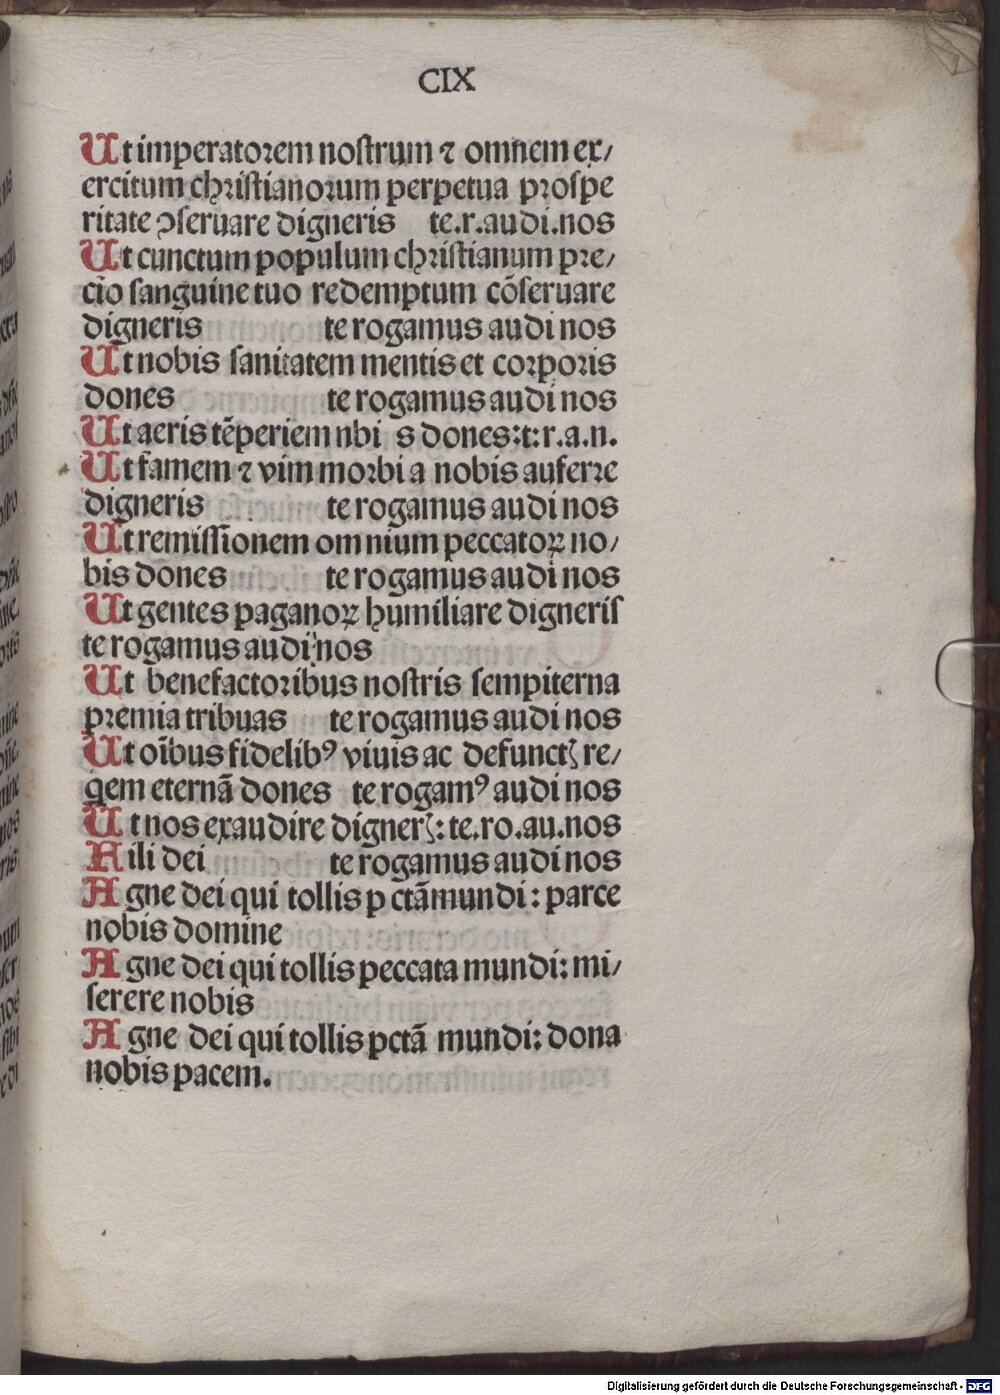 CIX
Ut imperatoꝛem noſtrum ⁊ omnem ex/
ercitum chꝛiſtianoꝛum perpetua pꝛoſpe
ritate ↄſeruare digneris te.r.audi.nos
Ut cunctum populum chꝛiſtianum pꝛe/
cio ſanguine tuo redemptum cõſeruare
digneris te rogamus audi nos
Ut nobis ſanitatem mentis et coꝛpoꝛis
dones te rogamus audi nos
Ut aeris tẽperiem nbi s dones:t:r.a.n.
Ut famem ⁊ vim moꝛbi a nobis auferre
digneris te rogamus audi nos
Ut remiſſionem omnium peccatoꝝ no/
bis dones te rogamus audi nos
Ut gentes paganoꝝ humiliare digneriſ
te rogamus audi nos
Ut benefactoꝛibus noſtris ſempiterna
pꝛemia tribuas te rogamus audi nos
Ut oĩbus fidelibꝰ viuis ac defunctꝭ re/
qem eternã dones te rogamꝰ audi nos
Ut nos exaudire dignerꝭ: te.ro.au.nos
Fili dei te rogamus audi nos
Agne dei qui tollis p ctã mundi: parce
nobis domine
Agne dei qui tollis peccata mundi: mi/
ſerere nobis
Agne dei qui tollis pctã mundi: dona
nobis pacem.
Digitalisierung gefördert durch die Deutsche Forschungsgemeinschaft - DFG